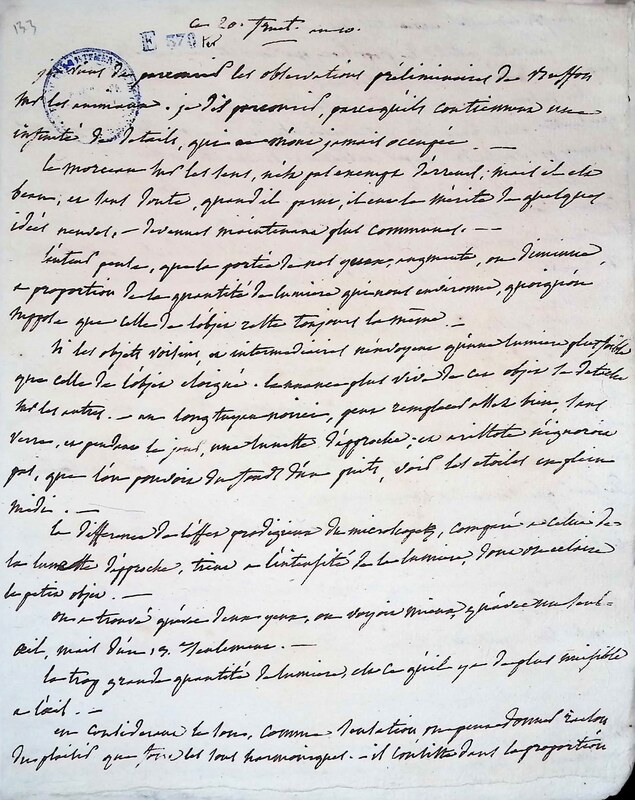 133
ce 20. fruct. an 10.
E 370 ter
DÉPARTEMENT
je viens de parcourir les observations préliminaires de Buffon
sur les animaux. je dis parcourir, parce qu'ils contiennent une
infinité de détails, qui ne m'ont jamais occupée. —
le morceau sur les sens, n'est pas exempt d'erreur; mais il est
beau; et sans doute, quand il parut, il eut le mérite de quelques
idées neuves, — devenues maintenant plus communes. —
l'auteur pense, que la portée de nos yeux, augmente, ou diminue,
a proportion de la quantité de lumiere qui nous environne, quoiqu'on
suppose que celle de l'objet reste toujours la même. —
si les objets voisins, et intermediaires n'envoyent qu'une lumiere plus foible
que celle de l'objet eloigné. la nuance plus vive de cet objet se detache
sur les autres. — un long tuyau noirci, peut remplacer assez bien, sans
verre, et pendant le jour, une lunette d'approche; et aristote n'ignoroit
pas, que l'on pouvoit du fond d'un puits, voir les etoiles en plein
midi. —
la difference de l'effet prodigieux du microscope, comparé a celui de
la lunette d'approche, tient a l'intensité de la lumiere, dont on eclaire
le petit objet. —
on a trouvé qu'avec deux yeux, on voyoit mieux, qu'avec un seul
œil, mais d'un 13. seulement. —
la trop grande quantité de lumiere, est ce qu'il y a de plus nuisible
a l'œil. —
en considerant le son, comme sensation on peut donner raison
du plaisir que font les sons harmoniques. — il consiste dans la proportion